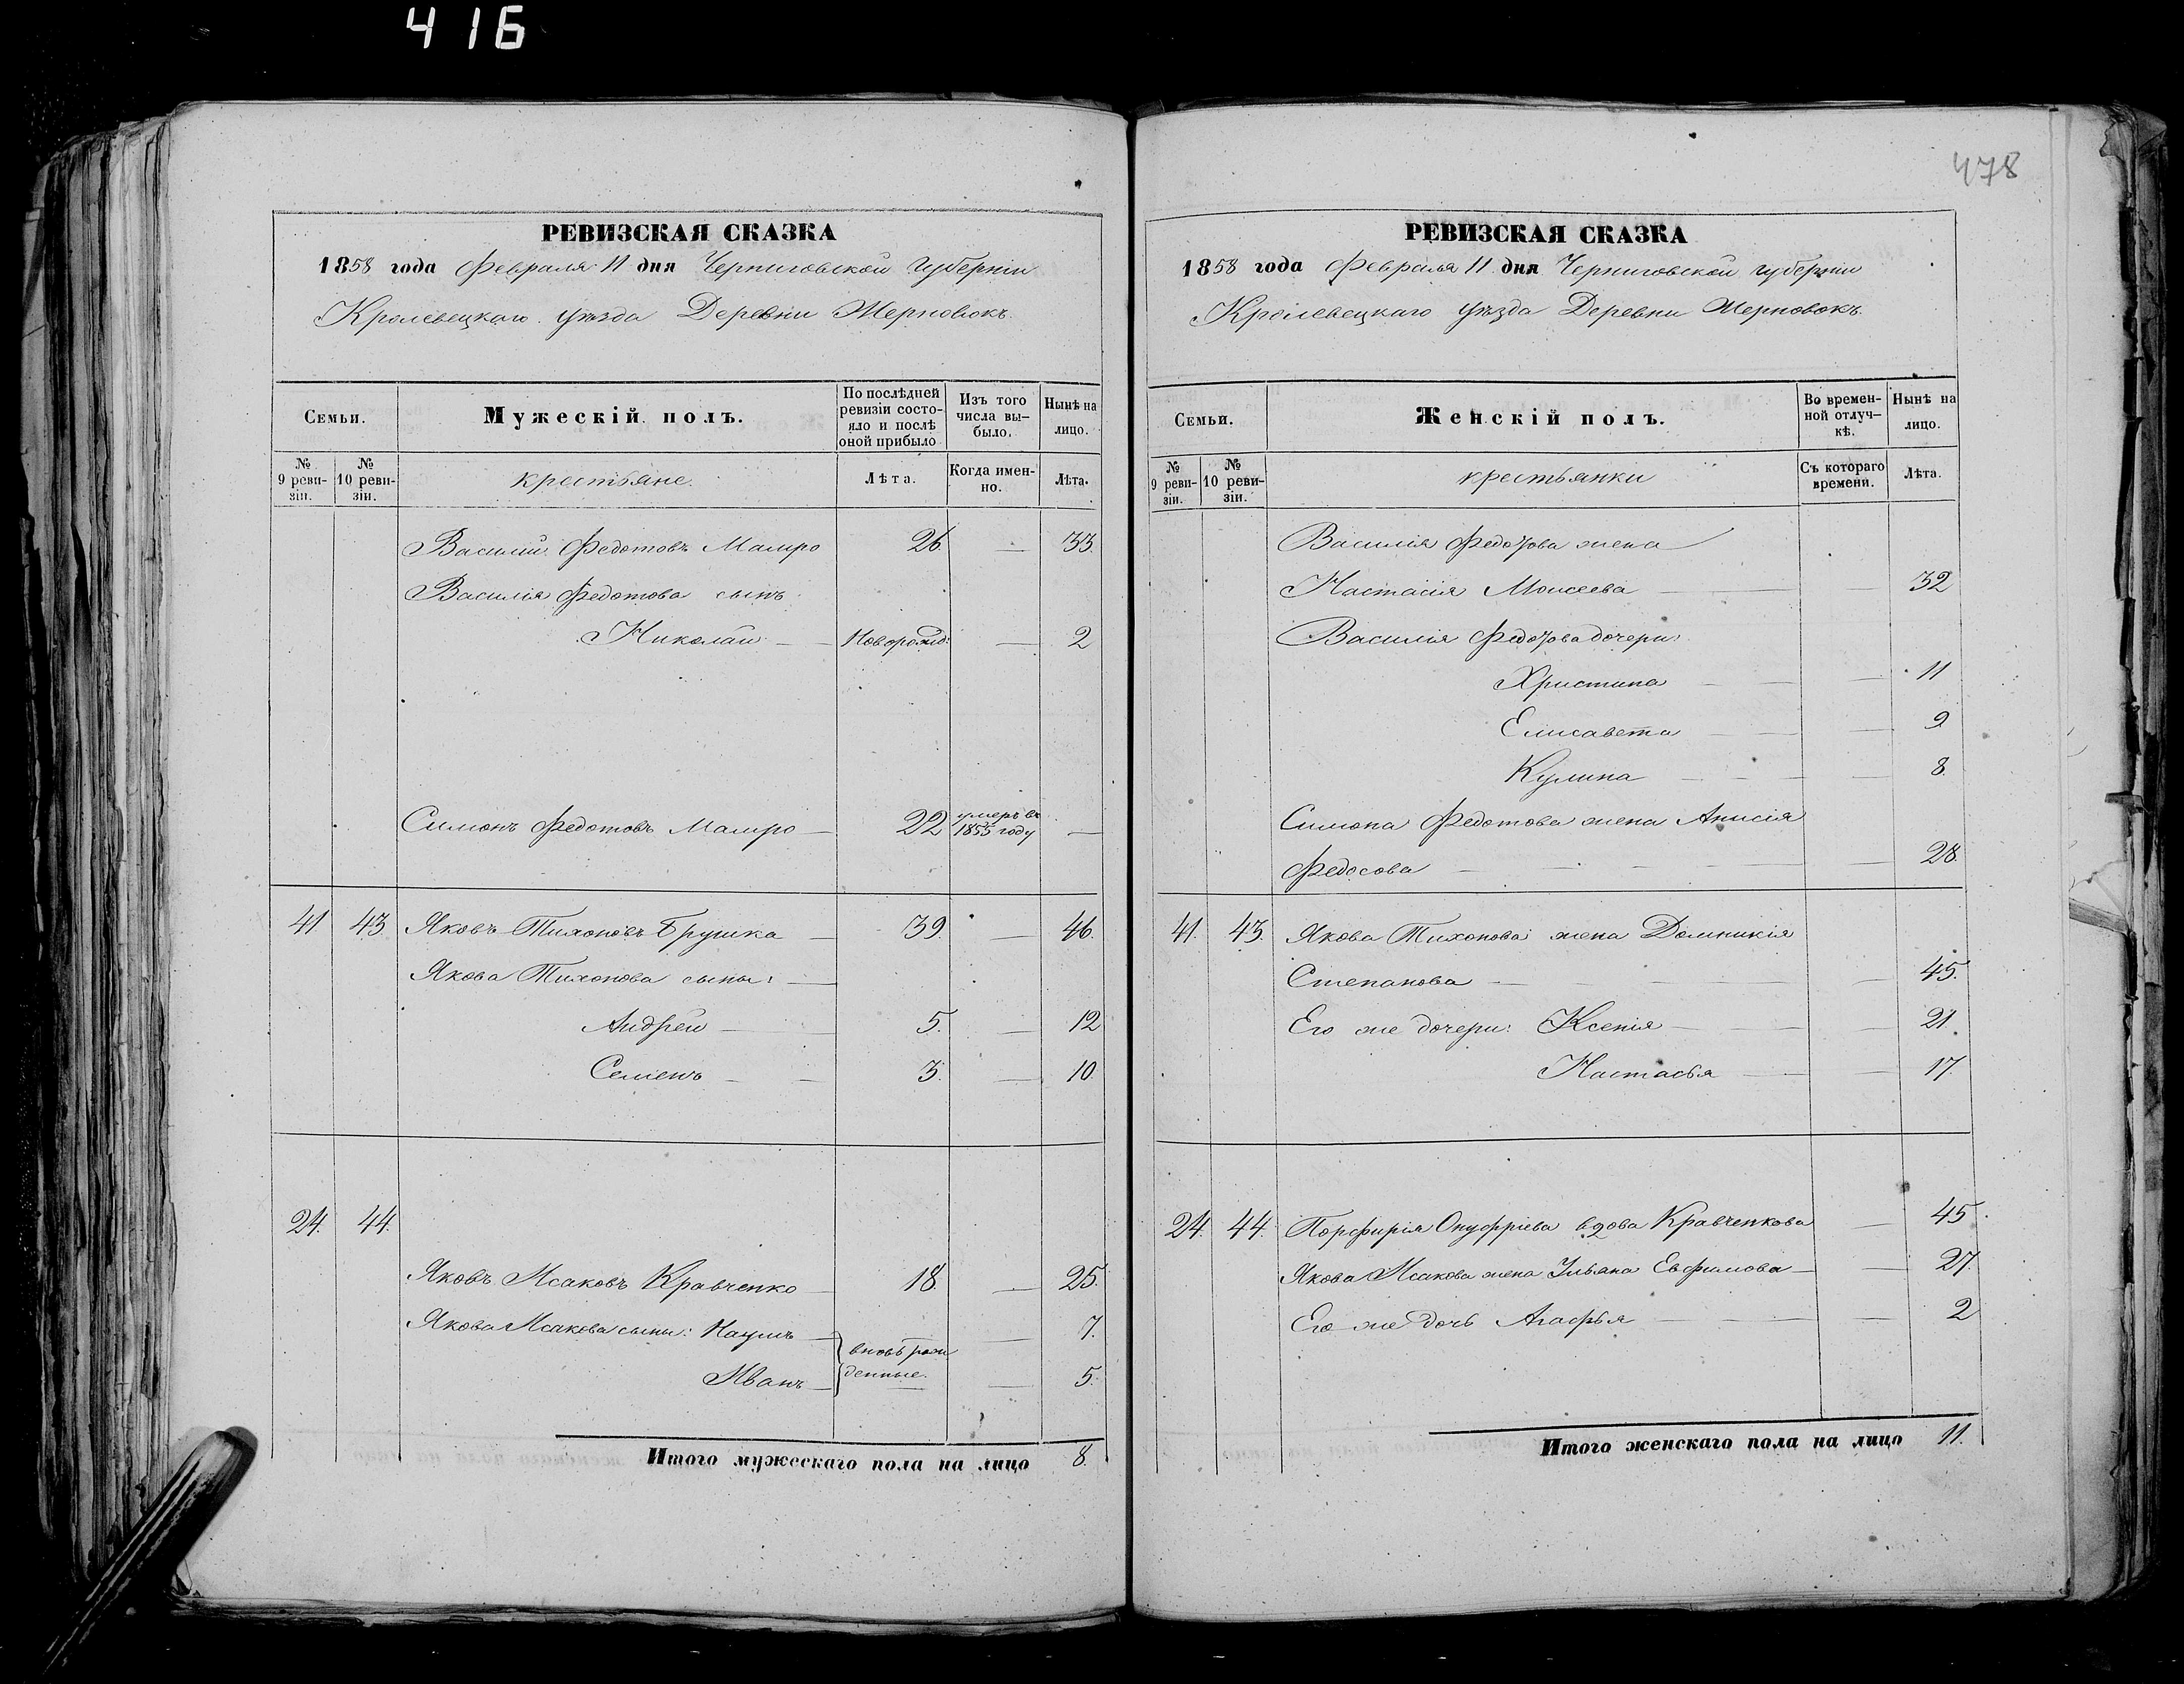 416
478
РЕВИЗСКАЯ СКАЗКА
1858 года Февраля 11 дня Черниговской губерніи
Кролевецкаго уѣзда Деревни Жерновокъ.
Семьи.
Мужескій полъ.
По послѣдней ревизіи состо-
яло и послѣ оной прибыло
Изъ того числа вы-
было.
Нынѣ на лицо.
№ 9 реви-
зіи.
№ 10 реви-
зіи.
крестьяне.
Лѣта.
Когда имен-
но.
Лѣта.
Василій Федотовъ 26 — 33.
Василія Федотова сынъ
Николай — Новорожд: — 2
Симонъ Федотовъ — 22 умеръ въ 1855 году —
41 43 Яковъ Тихоновъ Брушка — 39. — 46.
Якова Тихонова сыны: —
Андрей — 5. — 12
Семенъ — — 3. — 10.
24. 44.
Яковъ Исаковъ Кравченко — 18. — 25.
Якова Исакова сыны: Наумъ — вновь рож — 7.
Иванъ — денные. — 5.
Итого мужескаго пола на лицо 8.
РЕВИЗСКАЯ СКАЗКА
1858 года Февраля 11 дня Черниговской губерніи
Кролевецкаго уѣзда Деревни Жерновокъ.
Семьи.
Женскій полъ.
Во времен-
ной отлуч-
кѣ.
Нынѣ на лицо.
№ 9 реви-
зіи.
№ 10 реви-
зіи.
крестьянки
Съ котораго времени.
Лѣта.
Василія Федотова жена
Настасія Моисеева — — 32
Василія Федотова дочери:
Христина — — — 11
Елисавета — — — 9
Кулина — — — 8.
Симона Федотова жена Анисія
Федосова — — — — 28.
41. 43. Якова Тихонова жена Домникія
Степанова — — — — 45.
Его же дочери: Ксенія — — — 21.
Настасья — — — 17.
24. 44. Порфирія Онуфріева вдова Кравченкова — 45.
Якова Исакова жена Ульяна Евфимова — — 27.
Его же дочь Агафья — — — — 2
Итого женскаго пола на лицо 11.